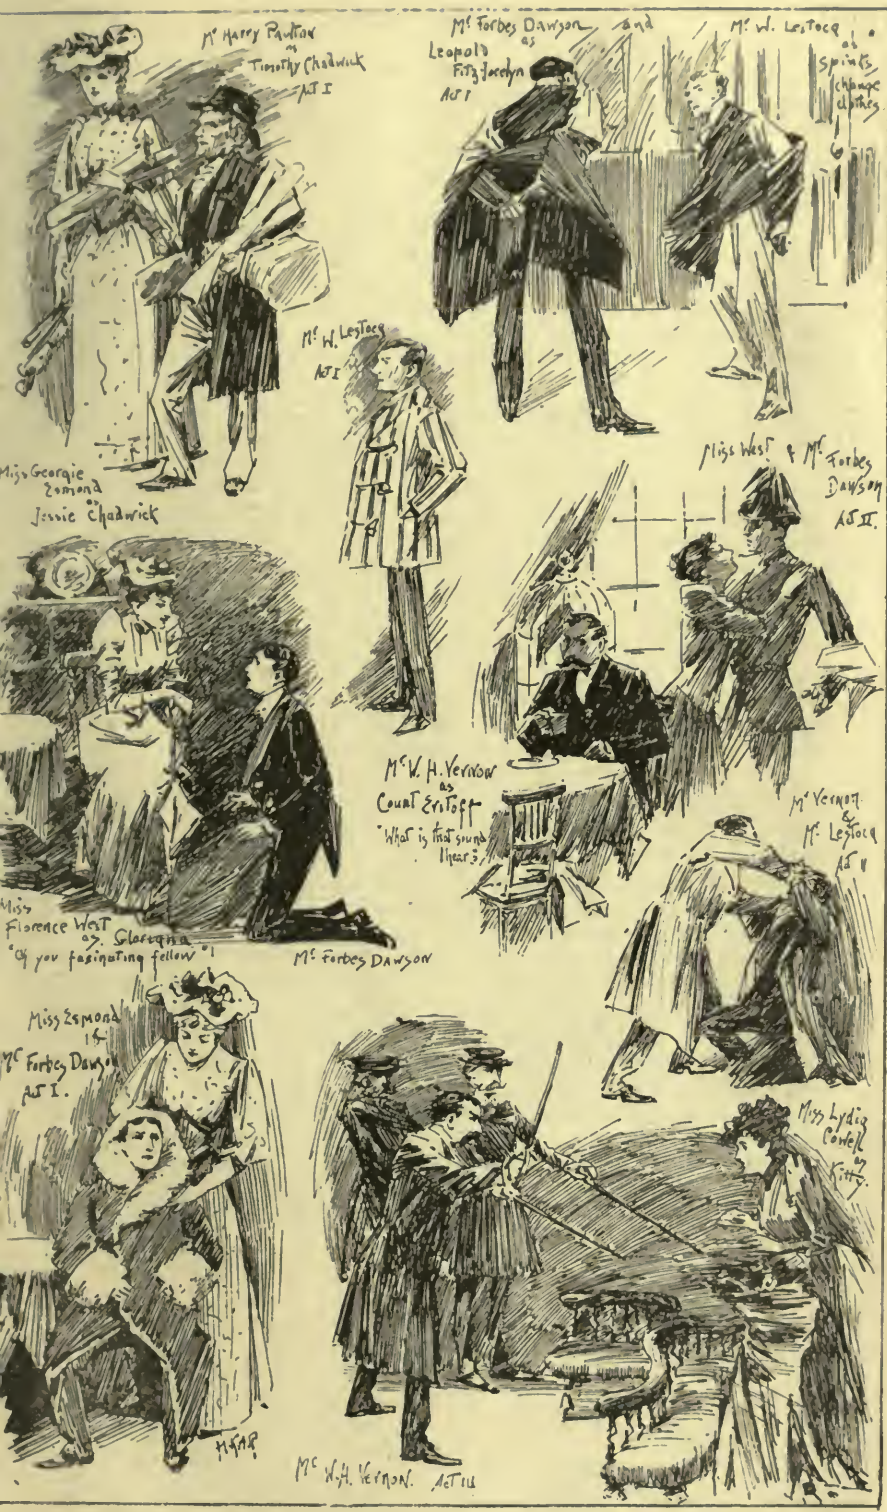 Mr Harry Paulton
as
Timothy Chadwick
Act I
Mr Forbes Dawson and
as
Leopold
Fitz Jocelyn
Act I
Mr. W. Lestocq
as
Spinks
change
clothes
Mr W. Lestocq
Act I
Miss Georgie
Esmond
as
Jessie Chadwick
Miss West & Mr Forbes
Dawson
Act II.
Mr W. H. Vernon
as
Count Evitoff
"What is that sound
I hear?"
Mr Vernon
&
Mr Lestocq
Act II
Miss
Florence West
as Gloriana
"Oh you fasinating fellow"!
Mr Forbes Dawson
Miss Esmond
&
Mr Forbes Dawson
Act I.
Miss Lydia
Cowell
as
Kitty.
Mr W.H. Vernon. Act III